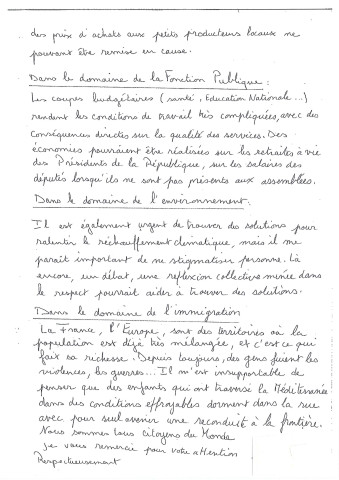 des prix d'achats aux petits producteurs locaux ne
pouvant être remise en cause.
Dans le domaine de la Fonction Publique :
Les coupes budgétaires (santé, Education Nationale...)
rendent les conditions de travail très compliquées, avec des
conséquences directes sur la qualité des services. Des
économies pourraient être réalisées sur les retraites à vie
des Présidents de la République, sur les salaires des
députés lorsqu'ils ne sont pas présents aux assemblées.
Dans le domaine de l'environnement.
Il est également urgent de trouver des solutions pour
ralentir le réchauffement climatique, mais il me
paraît important de ne stigmatiser personne. Là
encore, un débat, une réflexion collective menée dans
le respect pourrait aider à trouver des solutions.
Dans le domaine de l'immigration
La France, l'Europe, sont des territoires où la
population est déjà très mélangée, et c'est ce qui
fait sa richesse. Depuis toujours, des gens fuient les
violences, les guerres... Il m'est insupportable de
penser que des enfants qui ont traversé la Méditerranée
dans des conditions effroyables dorment dans la rue
avec pour seul avenir une reconduite à la frontière.
Nous sommes tous citoyens du Monde
Je vous remercie pour votre attention
Respectueusement